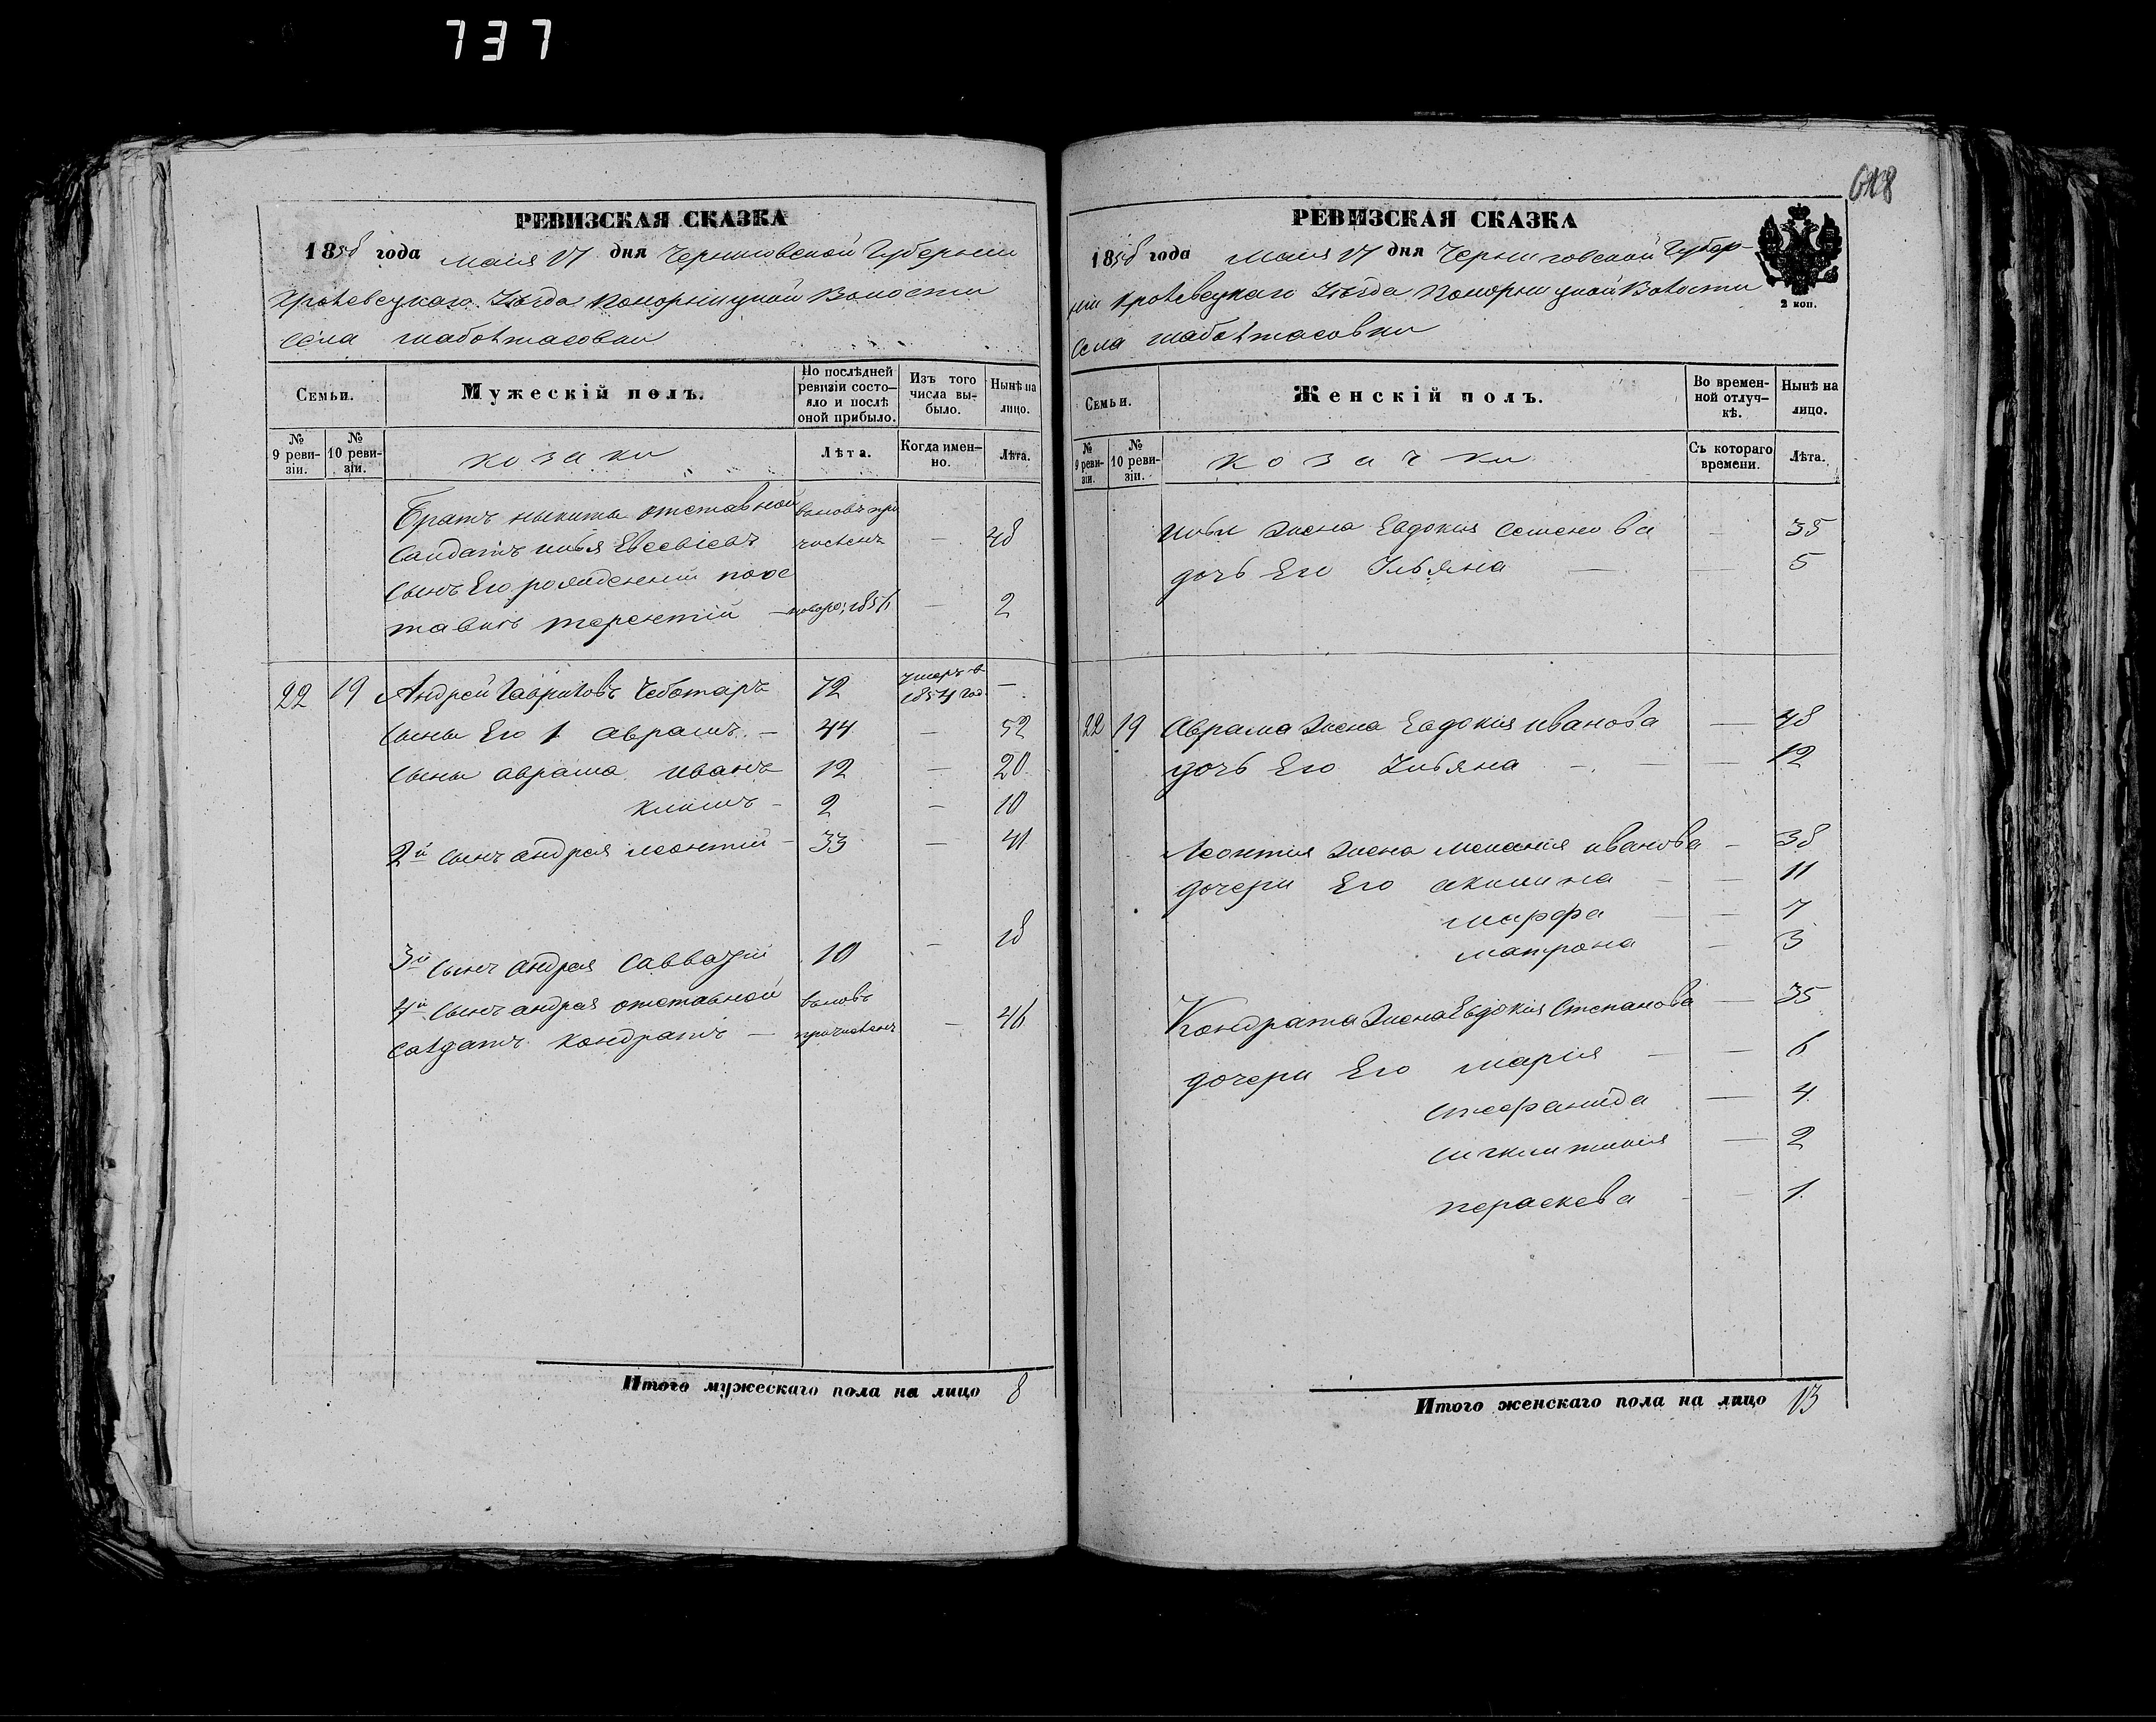 737
618
РЕВИЗСКАЯ СКАЗКА
1858 года Маія 17 дня Черниговской Губерніи
Кролевецкаго Уѣзда Понорницкой Волости
Села Шаболтасовки
Семьи.
Мужескій полъ.
По послѣдней ревизіи состояло и послѣ оной прибыло.
Изъ того числа выбыло.
Нынѣ на лицо.
№ 9 ревизіи.
№ 10 ревизіи.
козаки
Лѣта.
Когда именно.
Лѣта.
Братъ никиты отставной вновь при
Салдатъ илья Евсевіевъ численъ — 48
Сынъ Его рожденній поос
тавкѣ терентій — новоро; 1856 — 2
22 19 Андрей Гавриловъ Чеботарь 72 умеръ в 1854 год —
Сыны Его 1 аврамъ — 44 — 52
Сыны аврама иванъ 12 — 20
климъ — 2 — 10
2й Сынъ андрея леонтій — 33 — 41
3й Сынъ андрея Савватій 10 — 18
4й Сынъ андрея отставной вновь
Солдатъ кондратъ — причисленъ — 46
Итого мужескаго пола на лицо 8
РЕВИЗСКАЯ СКАЗКА
1858 года Маія 17 дня Черниговской Губер-
ніи Кролевецкаго Уѣзда Понорницкой Волости
Села Шаболтасовки
2 коп.
Семьи.
Женскій полъ.
Во временной отлучкѣ.
Нынѣ на лицо.
№ 9 ревизіи.
№ 10 ревизіи.
козачки
Съ котораго времени.
Лѣта.
ильи Жена Евдокия Семенова — 35
дочь Его Ульяна — — 5
22 19 Аврама Жена Евдокия иванова — 48
дочь Его Ульяна — — 12
Леонтия Жена меланія иванова — 38
дочери Его акилина — — 11
марфа — — 7
матрона — 3
Кондрата Жена Евдокия Степанова — 35
дочери Его марія — — 6
Стефанида — 4
— 2
пераскева — — 1
Итого женскаго пола на лицо 13